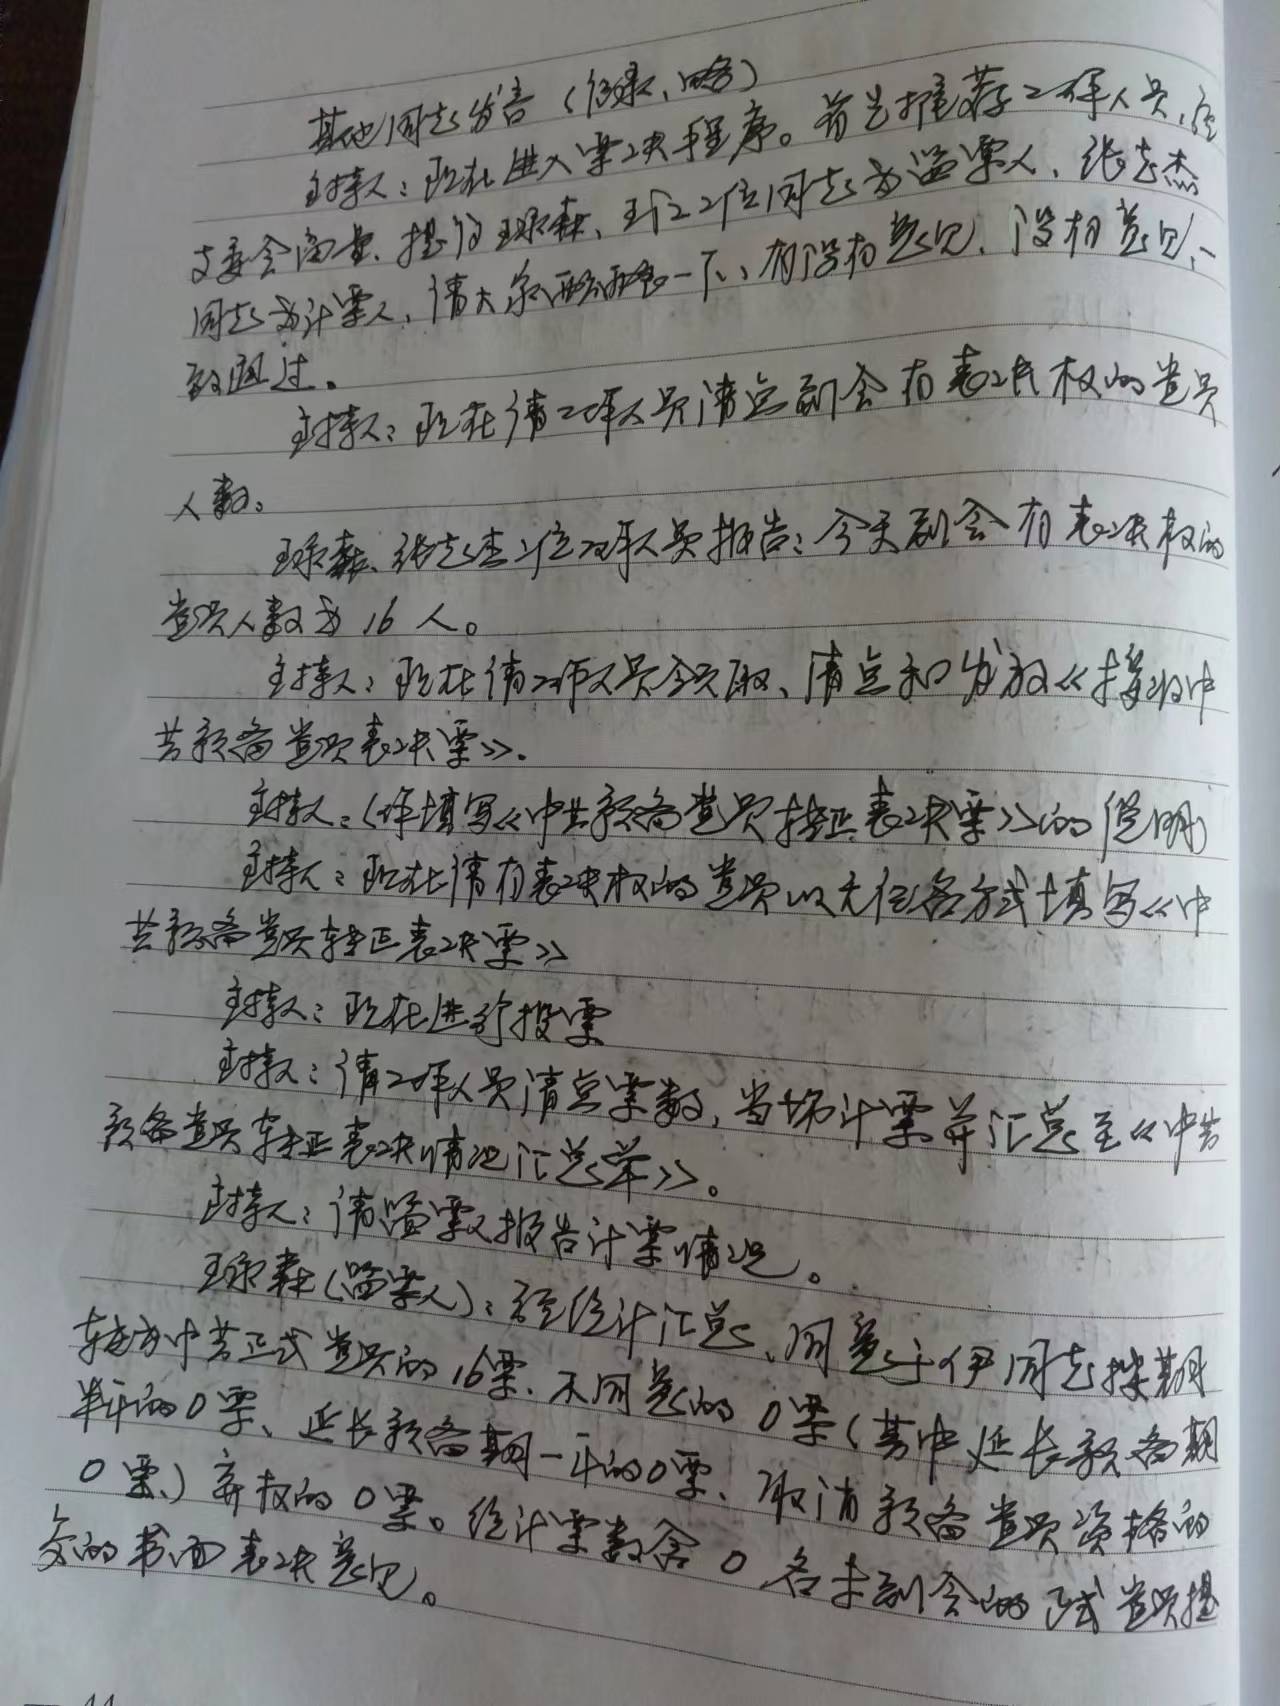 其他同志发言（记录、略）
主持人：现在进入票决程序。首先推荐工作人员，经
支委会商量、提议王永森、王 2位同志为监票人、张志杰
同志为计票人，请大家酝酿一下、有没有意见、没有意见、一
致通过。
主持人：现在请工作人员清点到会有表决权的党员
人数。
王永森、张志杰2位工作人员报告：今天到会有表决权的
党员人数为16人。
主持人：现在请工作人员领取、清点和发放《接收中
共预备党员表决票》。
主持人：（作填写《中共预备党员转正表决票》的说明）
主持人：现在请有表决权的党员以无记名方式填写《中
共预备党员转正表决票》
主持人：现在进行投票
主持人：请工作人员清点票数，当场计票并汇总至《中共
预备党员转正表决情况汇总单》。
主持人：请监票人报告计票情况。
王永森（监票人）：经统计汇总、同意于伊同志按期
转为中共正式党员的16票、不同意的0票（其中延长预备期
半年的0票、延长预备期一年的0票、取消预备党员资格的
0票、）弃权的0票。统计票数含0名未到会的正式党员提
交的书面表决意见。